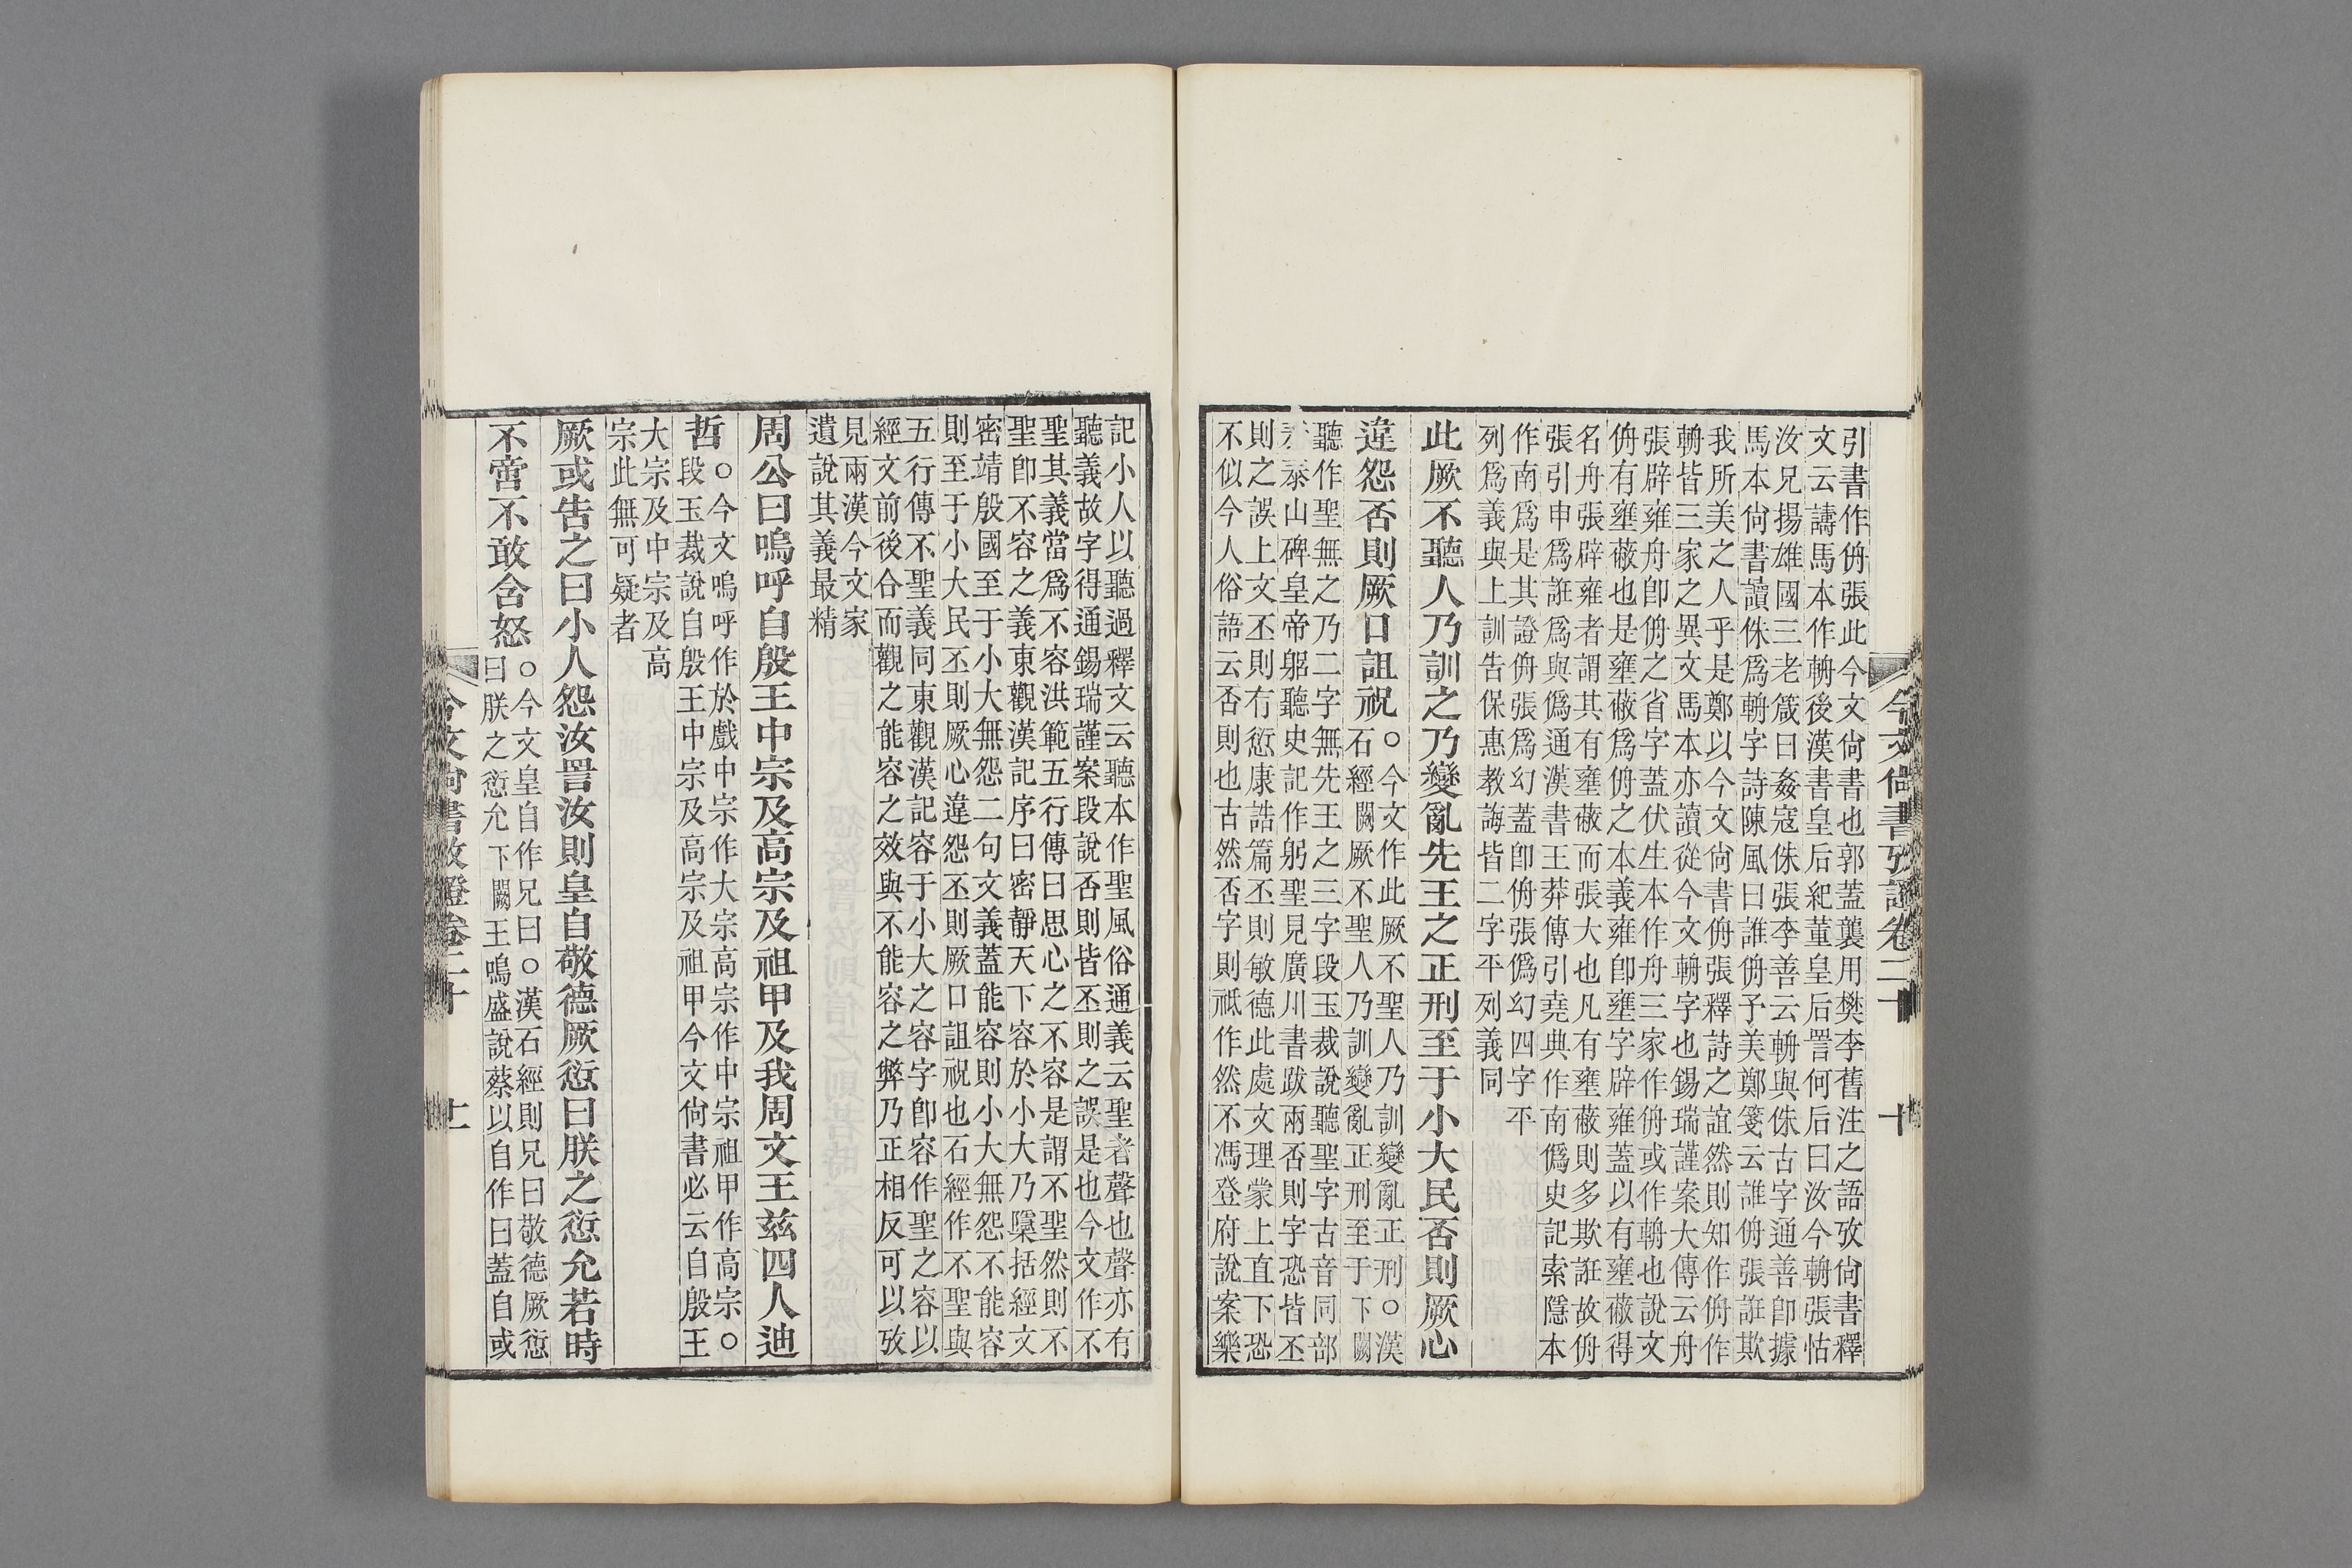 今文尚書攷證卷二十 十
引書作侜張此今文尚書也郭蓋襲用樊李舊注之語攷尚書釋
文云譸馬本作輈後漢書皇后紀董皇后詈何后曰汝今輈張怙
汝兄揚雄國三老箴曰姦寇侏張李善云輈與侏古字通善卽據
馬本尚書讀侏爲輈字詩陳風曰誰侜予美鄭箋云誰侜張誑欺
我所美之人乎是鄭以今文尚書侜張釋詩之誼然則知作侜作
輈皆三家之異文馬本亦讀從今文輈字也錫瑞謹案大傳云舟
張辟雍舟卽侜之省字蓋伏生本作舟三家作侜或作輈也說文
侜有壅蔽也是壅蔽爲侜之本義雍卽壅字辟雍蓋以有壅蔽得
名舟張辟雍者謂其有壅蔽而張大也凡有壅蔽則多欺誑故侜
張引申爲誑爲與僞通漢書王莽傳引堯典作南僞史記索隱本
作南爲是其證侜張爲幻蓋卽侜張僞幻四字平
列爲義與上訓告保惠教誨皆二字平列義同
此厥不聽人乃訓之乃變亂先王之正刑至于小大民否則厥心
違怨否則厥口詛祝
○今文作此厥不聖人乃訓變亂正刑○漢
石經闕厥不聖人乃訓變亂正刑至于下闕
聽作聖無之乃二字無先王之三字段玉裁說聽聖字古音同部
秦泰山碑皇帝躬聽史記作躬聖見廣川書跋兩否則字恐皆丕
則之誤上文丕則有愆康誥篇丕則敏德此處文理蒙上直下恐
不似今人俗語云否則也古然否字則祗作然不馮登府說案樂
記小人以聽過釋文云聽本作聖風俗通義云聖者聲也聲亦有
聽義故字得通錫瑞謹案段說否則皆丕則之誤是也今文作不
聖其義當爲不容洪範五行傳曰思心之不容是謂不聖然則不
聖卽不容之義東觀漢記序曰密靜天下容於小大乃檃括經文
密靖殷國至于小大無怨二句文義蓋能容則小大無怨不能容
則至于小大民丕則厥心違怨丕則厥口詛祝也石經作不聖與
五行傳不聖義同東觀漢記容于小大之容字卽容作聖之容以
經文前後合而觀之能容之效與不能容之弊乃正相反可以攷
見兩漢今文家
遺說其義最精
周公曰嗚呼自殷王中宗及高宗及祖甲及我周文王茲四人迪
哲
○今文嗚呼作於戲中宗作大宗高宗作中宗祖甲作高宗○
段玉裁說自殷王中宗及高宗及祖甲今文尚書必云自殷王
大宗及中宗及高
宗此無可疑者
厥或告之曰小人怨汝詈汝則皇自敬德厥愆曰朕之愆允若時
不啻不敢含怒
○今文皇自作兄曰○漢石經則兄曰敬德厥愆
曰朕之愆允下闕王鳴盛說蔡以自作曰蓋自或
今文尚書攷證卷二十 十一